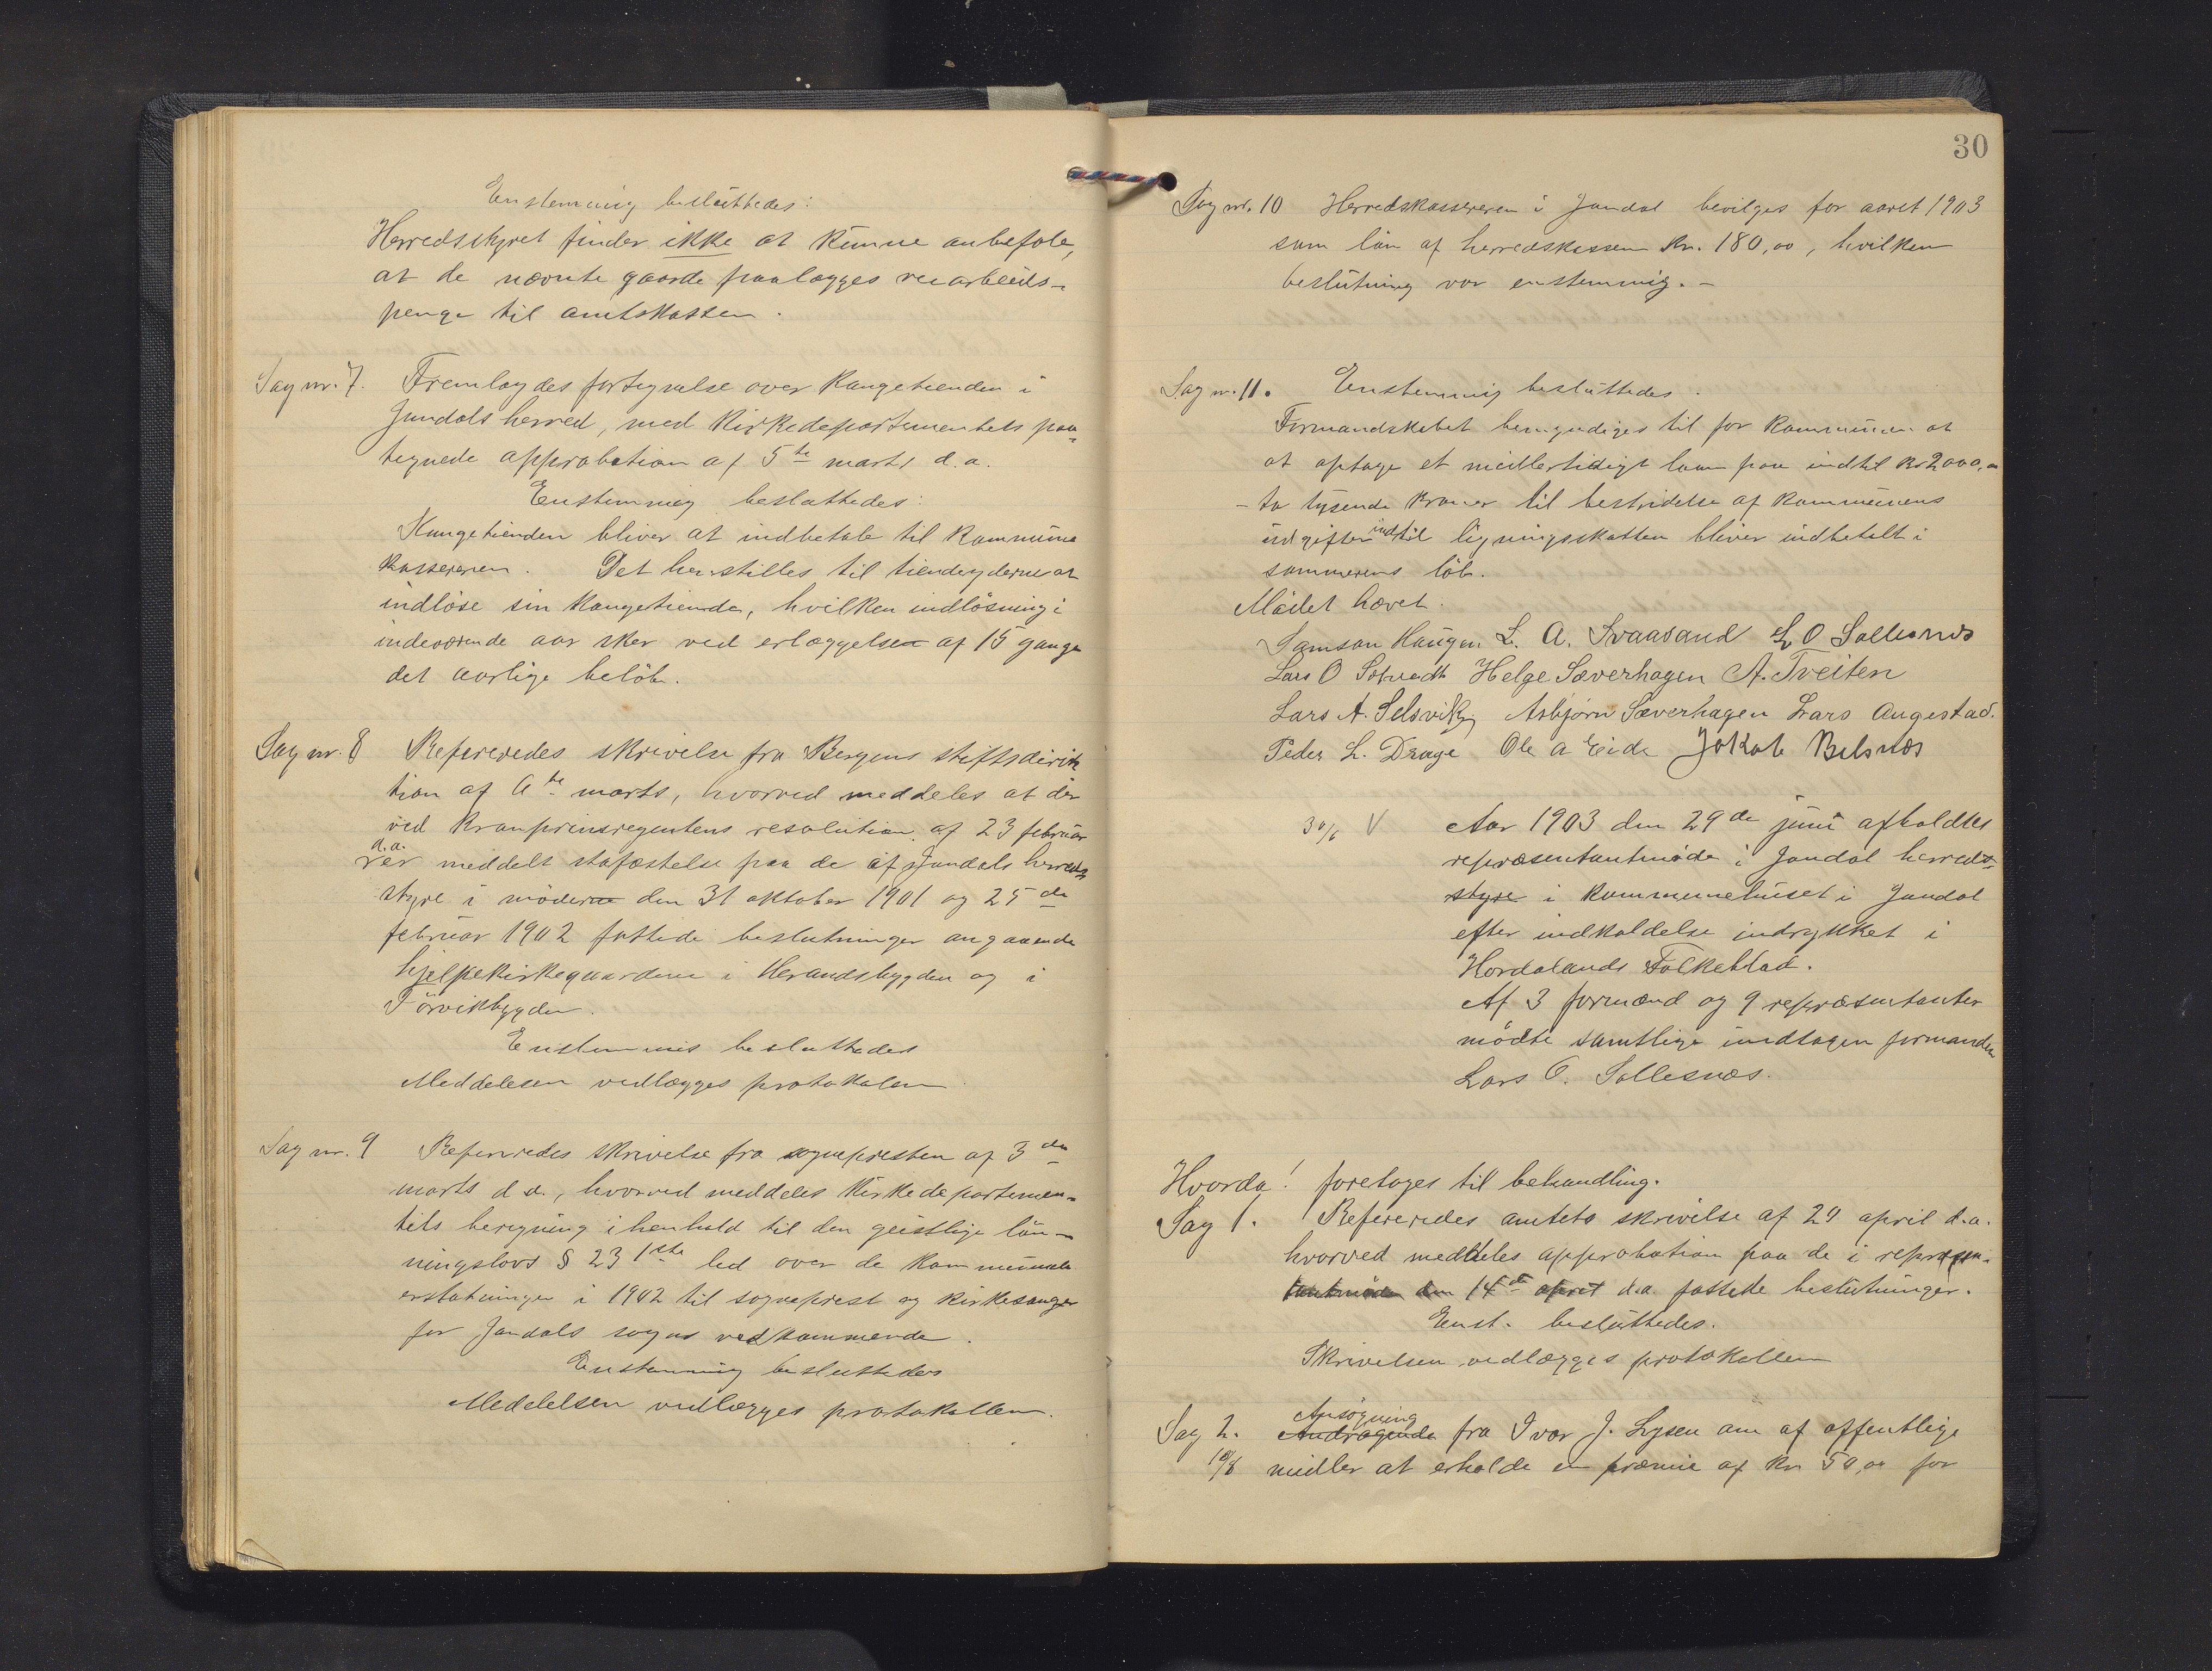 Enstemmig besluttedes:
Herredsstyret finder ikke at kunne anbefale,
at de nævnte gaarde paalægges vearbeids-
penge til amtskassen.
Sag nr. 7. Fremlagdes fortegnelse over kongetienden i
Jondals herred, med Kirkedepartementets paa-
tegnede approbation af 5te marts d.a.
Enstemmig besluttedes:
Kongetienden bliver at indbetale til kommune
kassereren. Det henstilles til tiendeyderne at
indløse sin kongetiende, hvilken indløsning i
indeværende aar sker ved erlæggelsen af 15 gange
det aarlige beløb.
Sag nr. 8 Refereredes skrivelse fra Bergens stiftsdirek
tion af 6te marts, hvorved meddeles at der
ved kronprinsregentens resolution af 23 februar
d.a.
er meddelt stafæstelse paa de af Jondals herreds
styre i møderne den 31 oktober 1901 og 25de
februar 1902 fattede beslutninger angaaende
hjelpekirkegaardene i Herandsbygden og i
Tørvikbygden.
Enstemmig besluttedes
Meddelesen vedlægges protokolen
Sag nr. 9 Refereredes skrivelse fra sognepresten af 3de
marts d.a., hvorved meddeles Kirkedepartemen-
tets beregning i henhold til den geistlige løn-
ningslovs § 23 1ste led over de kommunale
erstatninger i 1902 til sogneprest og kirkesanger
for Jondals sogns vedkommende.
Enstemmig besluttedes
Meddelelsen vedlægges protokollen.
30
Sag nr. 10 Herredskassereren i Jondal bevilges for aaret 1903
som løn af herredskassen kr. 180,00, hvilken
beslutning var enstemmig. -
Sag nr. 11. Enstemmig besluttedes.
Formandskabet bemyndiges til for kommunen at
at optage et midlertidigt laan paa indtil kr 2000,00
- to tusende kroner til bestridelse af kommunens
udgifter indtil ligningsskatten bliver indbetalt i
sommerens løb.
Mødet hævet.
Samson Haugen L. A. Svaasand L O Sollesnes
Lars O Helge Sæverhagen A. Tveiten
Lars A. Selsvik Asbjørn Sæverhagen Lars Augestad.
Peder L. Drage Ole A Eide Jakob Belsnæs
30/6 V Aar 1903 den 29de juni afholdtes
repræsentantmøde i Jondal herreds-
styre i kommunehuset i Jondal
efter indkaldelse indrykket i
Hordalands Folkeblad.
Af 3 formænd og 9 repræsentanter
mødte samtlige undtagen formanden
Lars O. Sollesnæs.
Hvorda! foretoges til behandling.
Sag 1. Refereredes amtets skrivelse af 29 april d.a.
hvorved meddeles approbation paa de i repræsen-
tantmøde den 14de april d.a. fattede beslutninger.
Enst. besluttedes.
Skrivelsen vedlægges protokollen
Ansøgning
Sag 2. Andragende fra Ivar J. Lysen om af offentlige
10/8 midler at erholde en præmie af kr 50,00 for